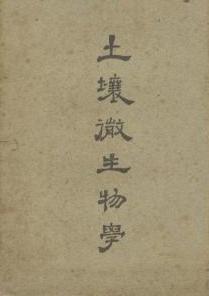 土壤微生物學